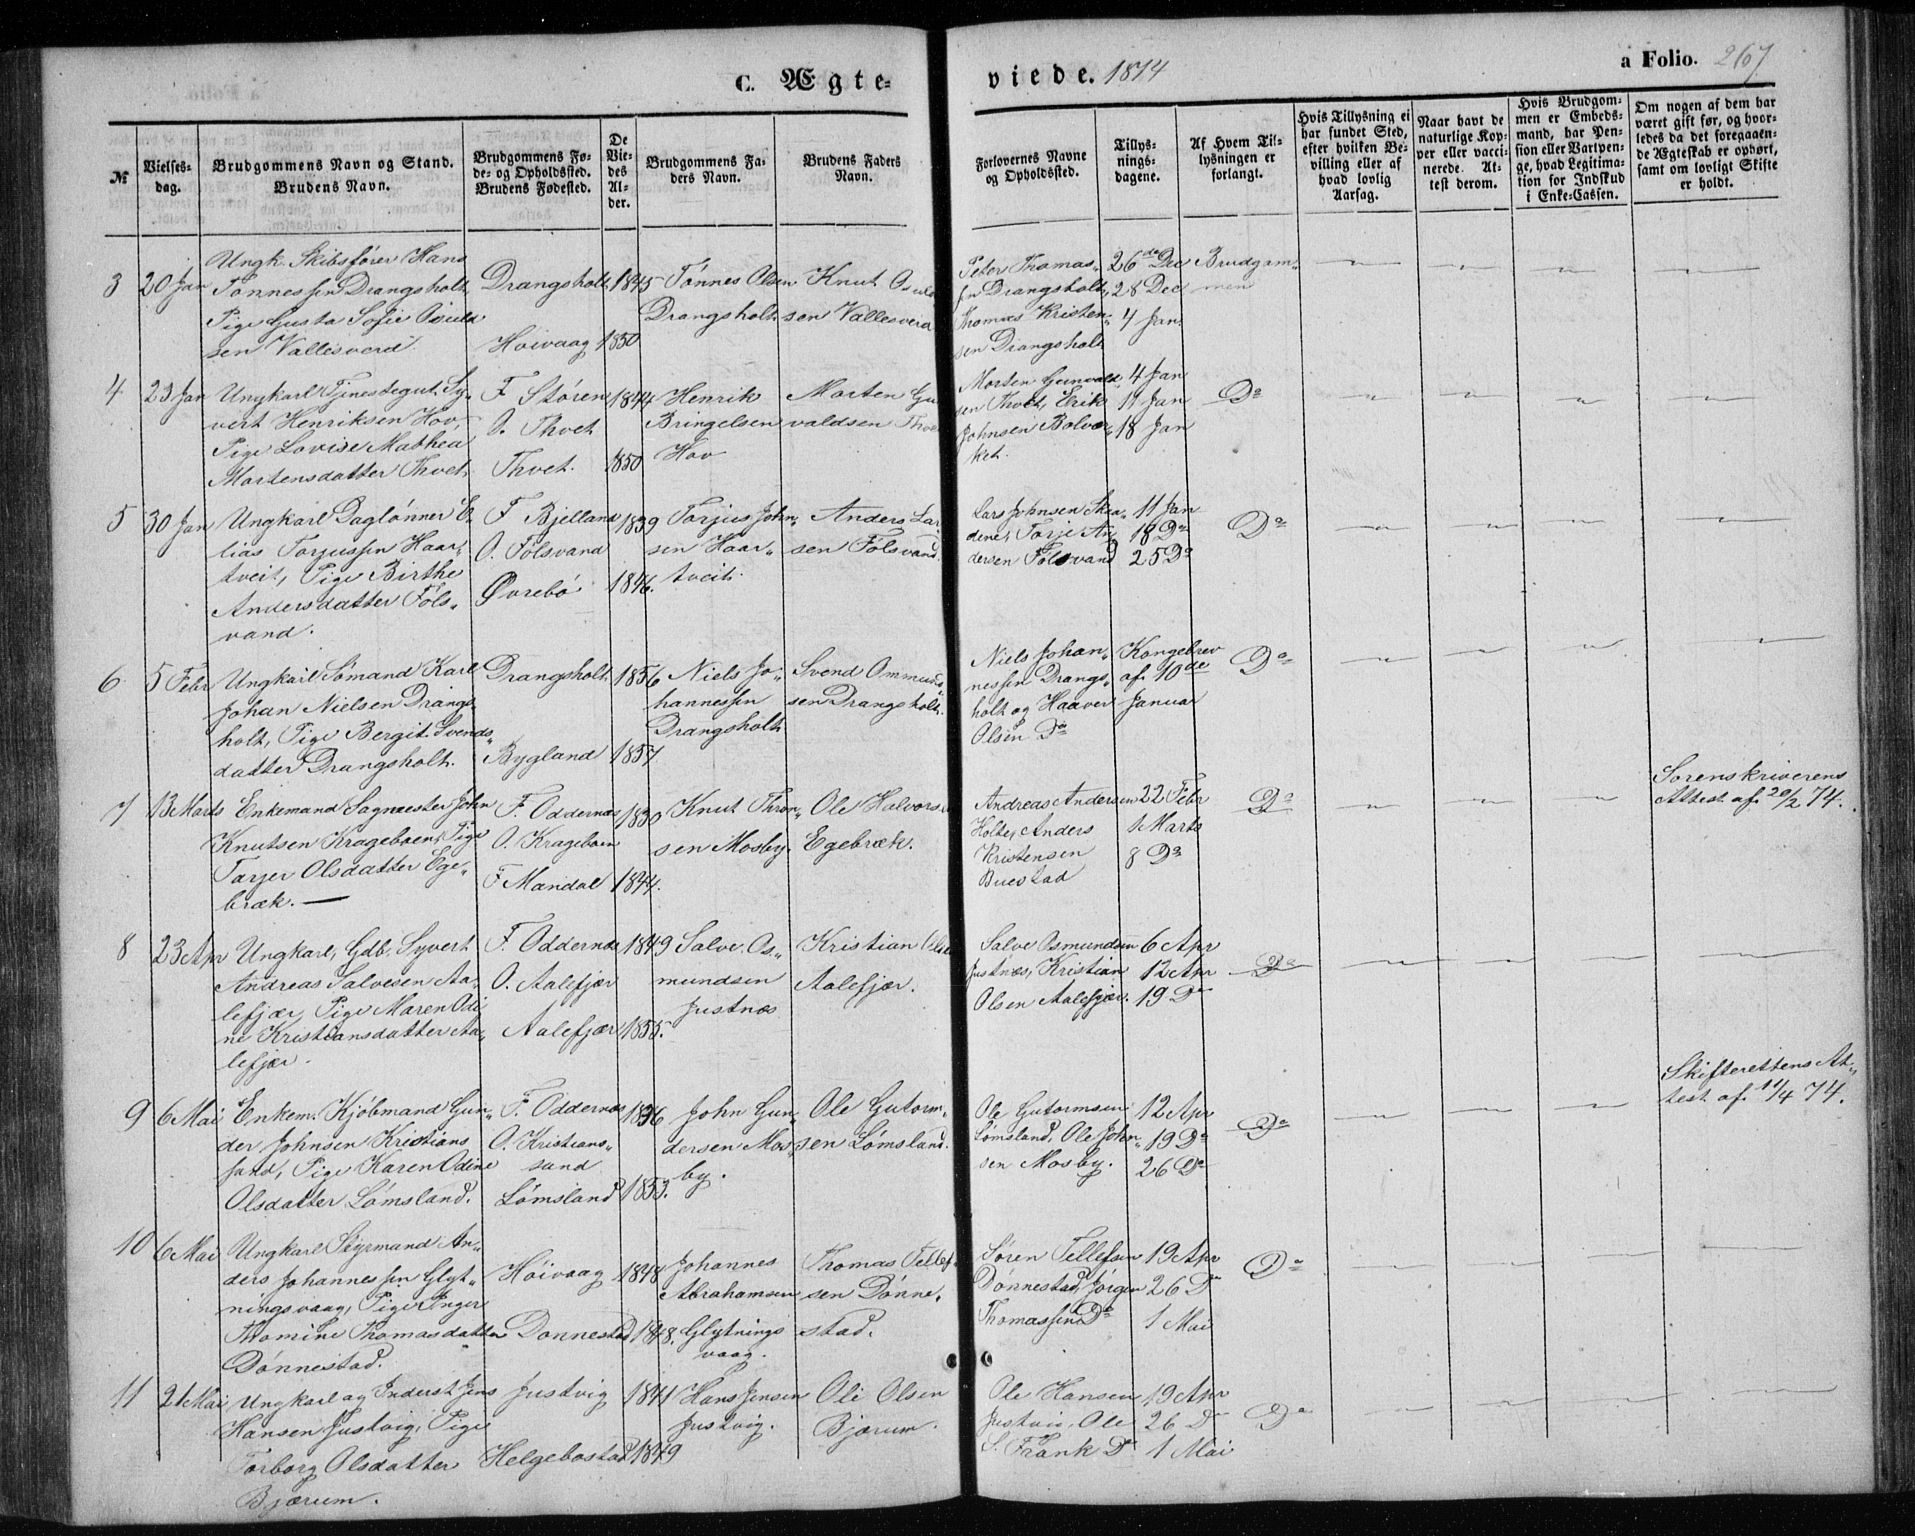 C. Ægte-
viede. 1874
a Folio. 267
№
Vielses-
dag.
Brudgommens Navn og Stand.
Brudens Navn.
Brudgommens Fø-
de- og Opholdssted.
Brudens Fødested.
De
Vie-
des
Al-
der.
Brudgommens Fa-
ders Navn.
Brudens Faders
Navn.
Forlovernes Navne
og Opholdssted.
Tillys-
nings-
dagene.
Af Hvem Til-
lysningen er
forlangt.
Hvis Tillysning ei
har fundet Sted,
efter hvilken Be-
villing eller af
hvad lovlig
Aarsag.
Naar havt de
naturlige Kop-
per eller vacci-
nerede. At-
test derom.
Hvis Brudgom-
men er Embeds-
mand, har Pen-
sion eller Vartpen-
ge, hvad Legitima-
tion for Indskud
i Enke-Cassen.
Om nogen af dem har
været gift før, og hvor-
ledes da det foregaaen-
de Ægteskab er ophørt,
samt om lovligt Skifte
er holdt.
3
20 Jan
Ungk. Skibsfører Hans
Tønnessen Drangsholt,
Pige Gusta Sofie Osuld
sen Vallesverd
Drangsholt
Høivaag
1845
1850
Tønnes Olsen
Drangsholt
Knut Osuld
sen Vallesverd
Peter Thomas-
sen Drangsholt,
Thomas Kristen-
sen Drangsholt
26de Dec
28 Dec
4 Jan.
Brudgom-
men
4
23 Jan
Ungkarl Tjenestegut Sy-
vert Henriksen Hov,
Pige Lovise Mathea
Martensdatter Thvet
F. Støren
O. Thvet
Thvet.
1844
1850
Henrik
Bringelsen
Hov
Morten Gu
valdsen Thvet
Morten Gunvald
sen Thvet, Erik
Johnsen Bolvæ-
ket.
4 Jan
11 Jan
18 Jan
Do
5
30 Jan
Ungkarl Dagløner E-
lias Torjussen Haar-
tveit, Pige Birthe
Andersdatter Føls-
vand.
F. Bjelland
O. Følsvand
Øvrebø
1839
1846.
Torjus John-
sen Haar-
tveit.
Anders Lar
sen Følsvand.
Lars Johnsen Skaa-
dene, Torje An-
dersen Følsvand
11 Jan
18 Do
25 Do
Do
6
5 Febr
Ungkarl Sømand Karl
Johan Nielsen Drangs-
holt, Pige Bergit Svends-
datter Drangsholt.
Drangsholt
Bygland
1856
1857
Niels Jo-
hannessen
Drangsholt
Svend Ommund-
sen Drangsholt.
Niels Johan-
nessen Drangs-
holt og Haaver
Olsen Do
Kongebrev
af 10de
Januar
Do
7
13 Marts
Enkemand Sagmester John
Knutsen Krageboen, Pige
Tarjer Olsdatter Ege-
bræk.
F. Oddernæs
O. Krageboen
F Mandal
1830
1844.
Knut Thron-
sen Mosby.
Ole Halvors
Egebræk.
Andreas Andersen
Holte, Anders
Kristensen
Buestad
22 Febr
1 Marts
8 Do
Do
Sorenskriverens
Attest af 20/2 74.
8
23 Apr
Ungkarl, Gdb. Syvert
Andreas Salvesen Aa-
lefjær, Pige Maren Odi-
ne Kristiansdatter Aa-
lefjær.
F. Oddernæs
O. Aalefjær
Aalefjær
1849
1855.
Salve Os-
mundsen
Justnæs
Kristian Olsen
Aalefjær.
Salve Osmundsen
Justnæs, Kristian
Olsen Aalefjær.
6 Apr
12 Apr
19 Do
Do
9
6 Mai
Enkem. Kjøbmand Gun-
der Johnsen Kristians
sand, Pige Karen Odine
Olsdatter Lømsland.
F. Oddernæs
O. Kristians-
sand
Lømsland
1836
1853.
John Gun-
dersen Mos-
by.
Ole Gutorm-
sen Lømsland.
Ole Gutormsen
Lømsland, Ole John-
sen Mosby.
12 Apr
19 Do
26 Do
Do
Skifterettens At-
test af 11/4 74.
10
6 Mai
Ungkarl Styrmand An-
ders Johannessen Glyt-
ningsvaag, Pige Inger
Thomine Thomasdatter
Dønnestad.
Høivaag
Donnestad
1848
1848.
Johannes
Abrahamsen
Glytnings
vaag.
Thomas Tellef-
sen Dønne-
stad.
Søren Tellefsen
Dønnestad, Jørgen
Thomassen Do
19 Apr
26 Do
1 Mai
Do
11
21 Mai
Ungkarl og Inderst Jens
Hansen Justvig, Pige
Torborg Olsdatter
Bjærum.
Justvig
Helgebostad
1841
1849
Hans Jensen
Justvig.
Ole Olsen
Bjærum.
Ole Hansen
Justvig, Ole
S. Frank Do
19 Apr
26 Do
1 Mai
Do